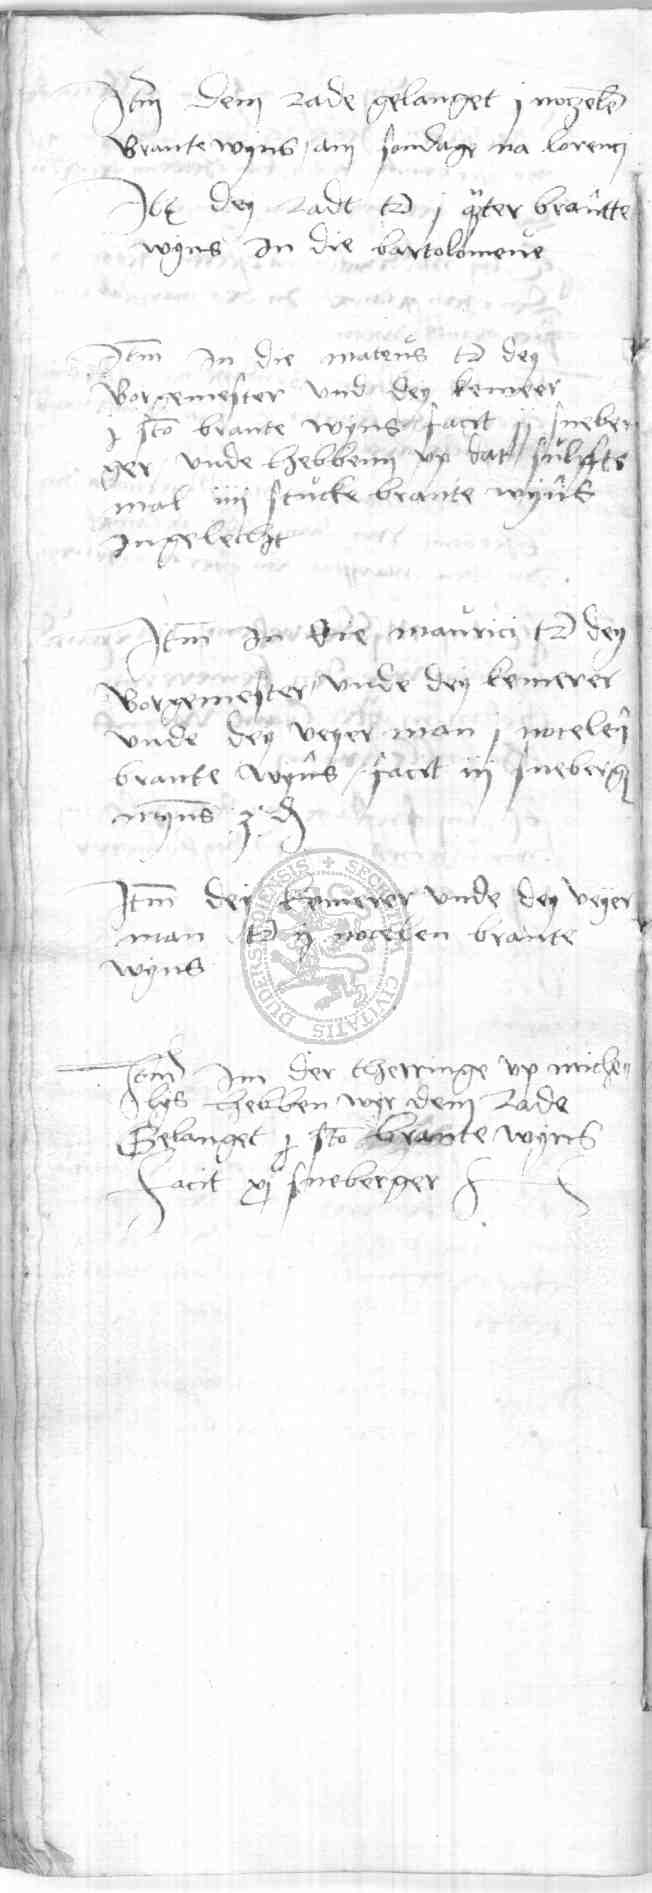 Itm dem rade gelanget j noczele
Brante wyns am sondage na lorenci
Itz dey radt td j qter brantte
wyns In die bartolomeue
Itm In die mateus td dey
Borgemester vnd dey kemrer
j sto brante wyns facit ij sneber
ger vnde hebbenn vp dat sulffte
mal iiij stucke brante wyns
ingelecht
Itm In die maurici td dey
Borgemester vnde dey kemerer
vnde dey veyer man j nocelen
brante wyns facit iij sneberg
mynus 3 d
Itm dey kemerer vnde dey veyer
man td ij nocelen brante
wyns
Itm Inn der therringe vp miche
lys hebben wyr dem Rade
Gelanget j sto brante wyns
facit xj sneberger
SECRETUM CIVITATIS DUDERSTADIENSIS